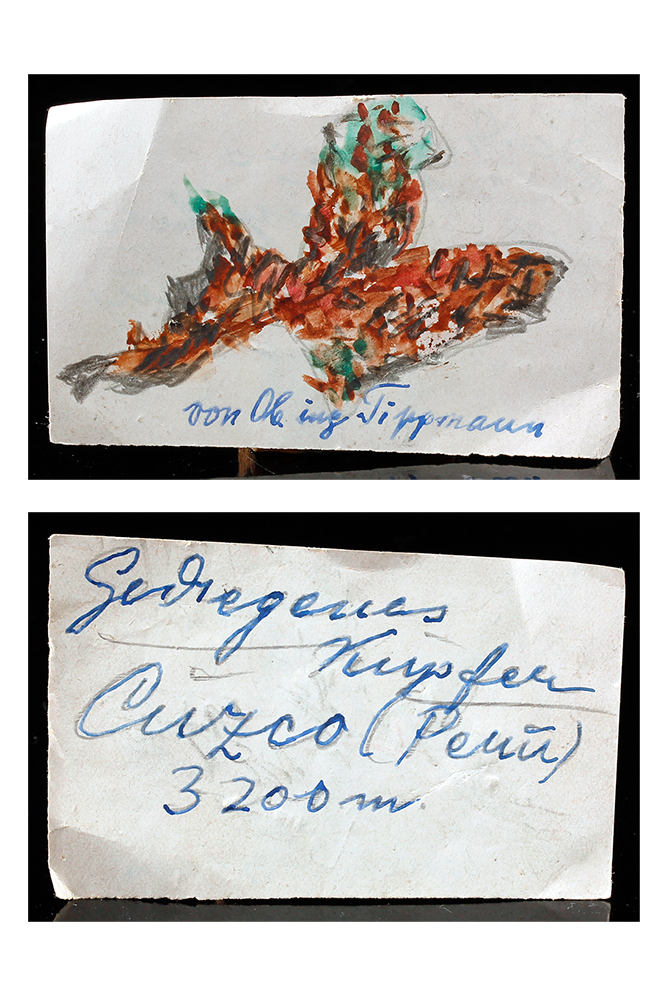 von Ob ing Tippmann
Gediegenes
Kupfer
Cuzco (Peru)
3200 m